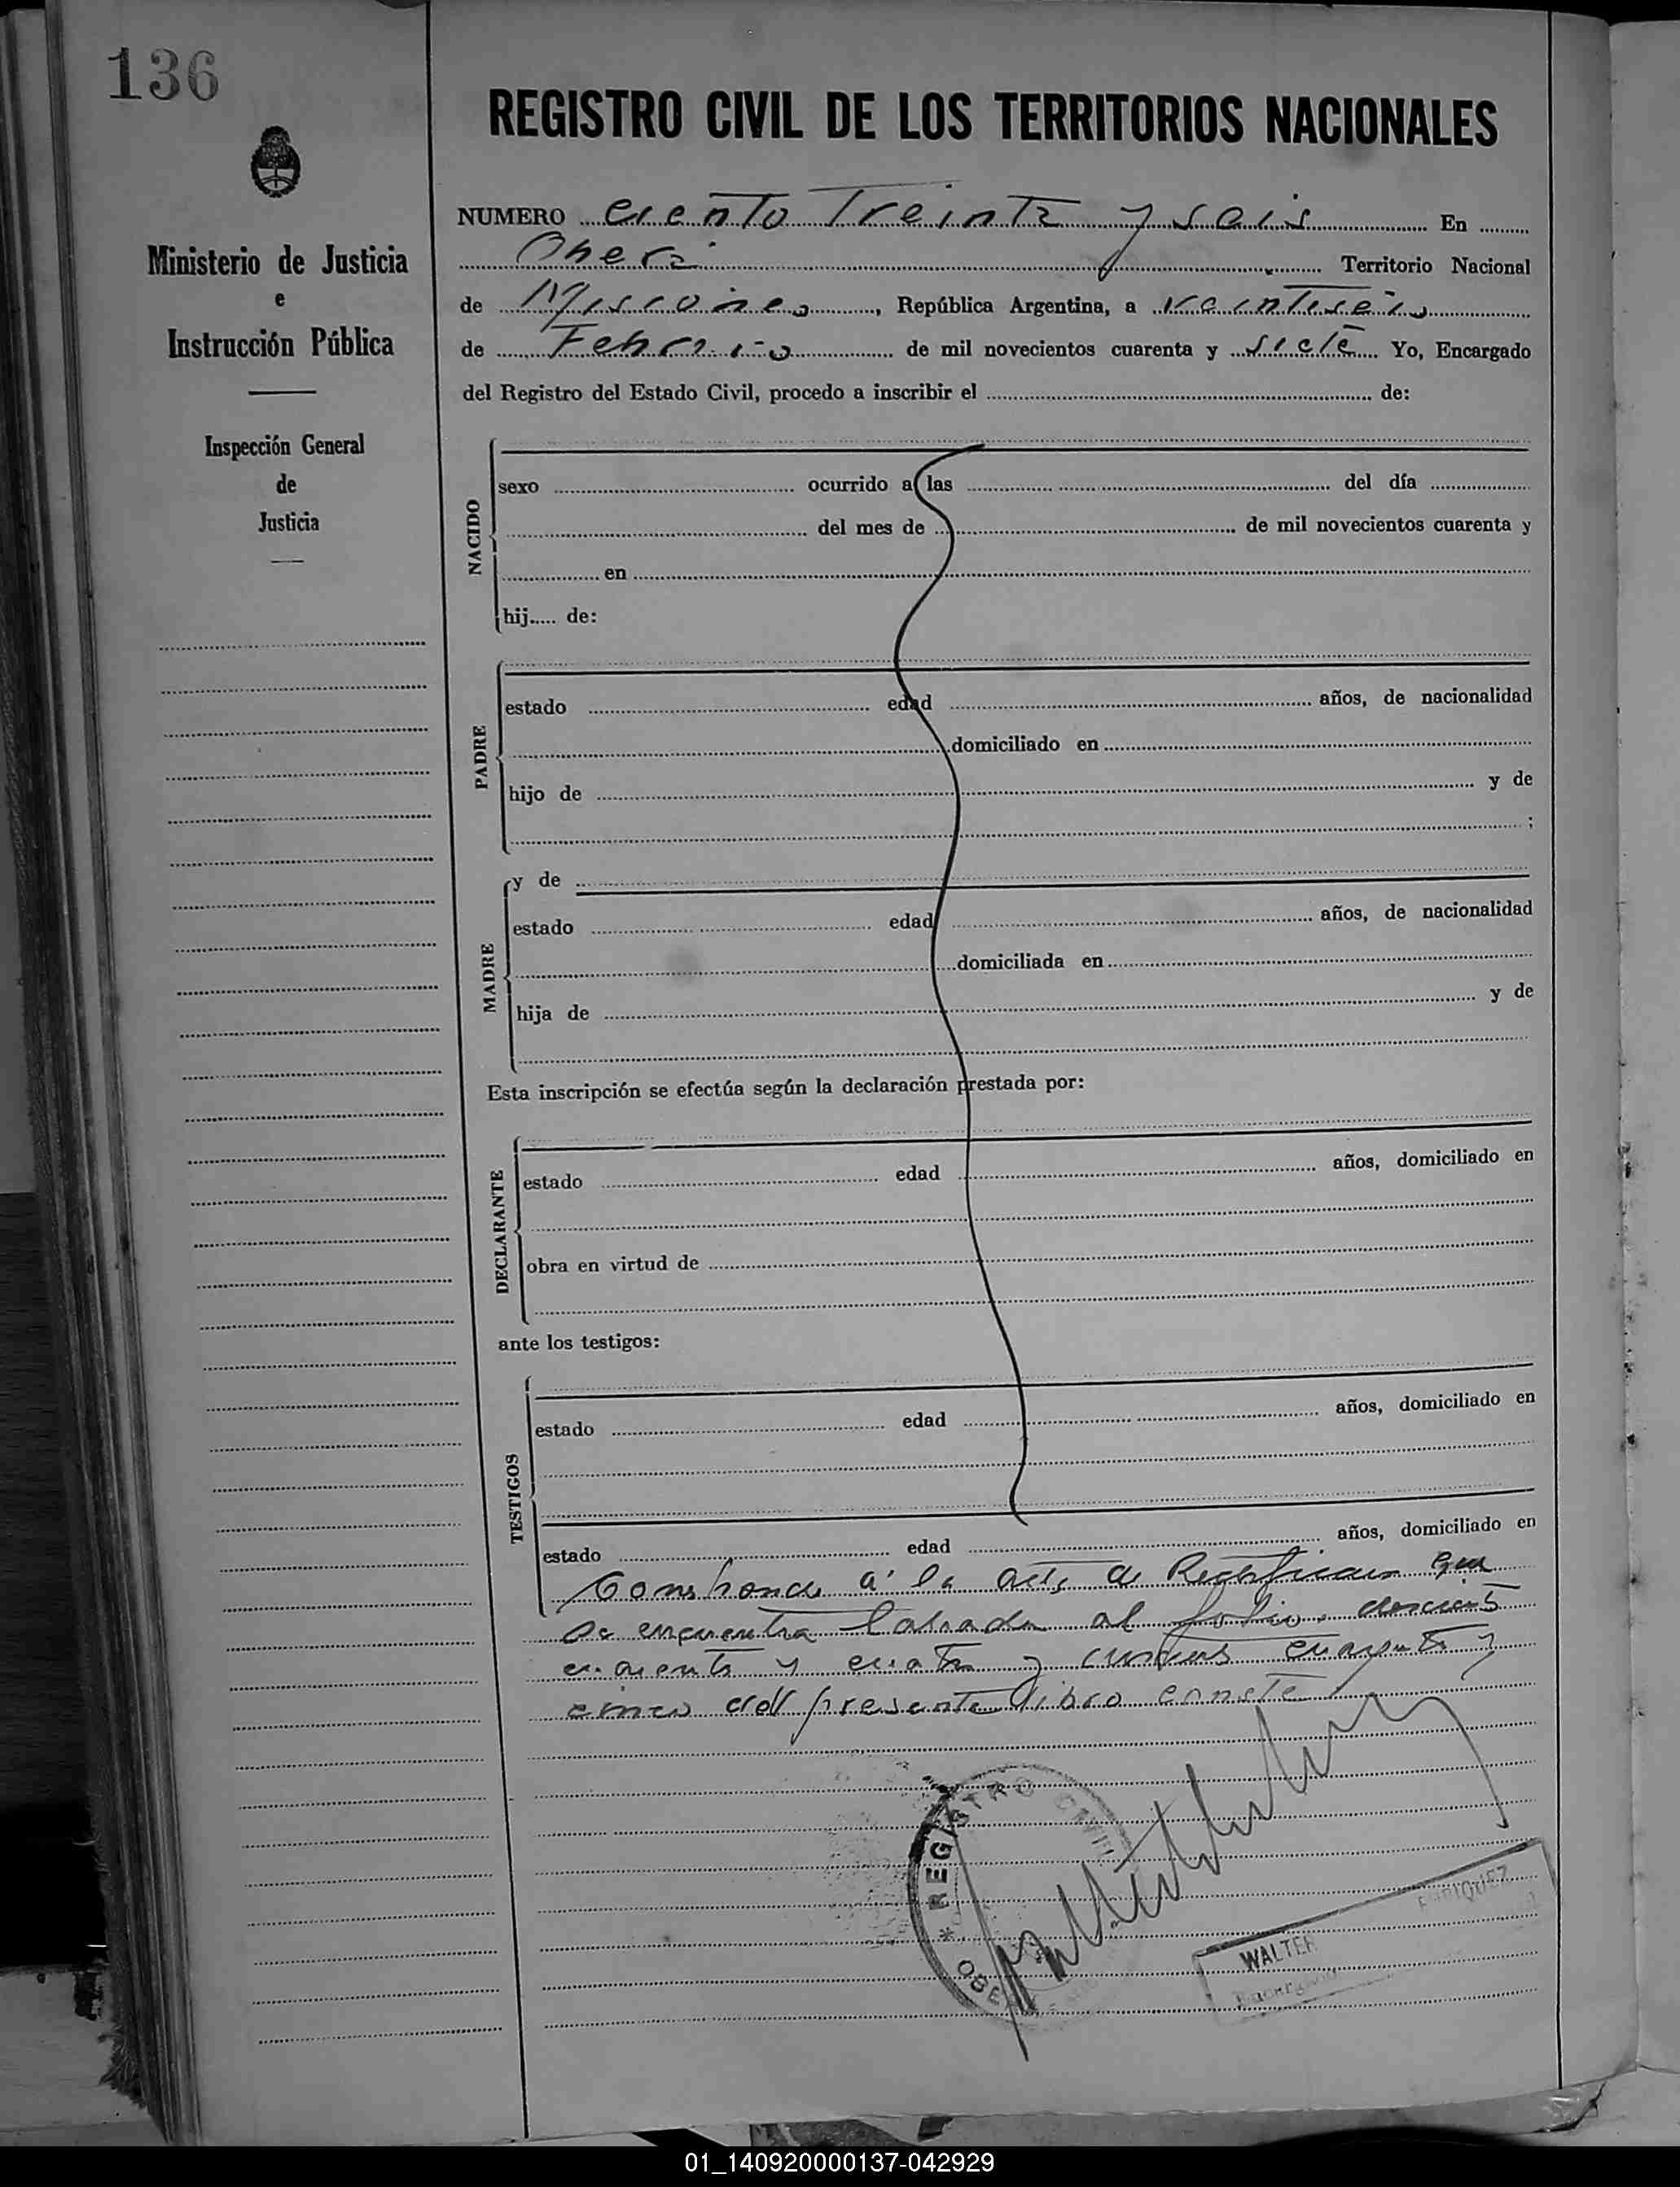 136
REGISTRO CIVIL DE LOS TERRITORIOS NACIONALES
Ministerio de Justicia
e
Instrucción Pública
Inspección General
de
Justicia
NUMERO ciento Treinta y seis En
Oberá Territorio Nacional
de Misiones, República Argentina, a veintiseis
de Febrero de mil novecientos cuarenta y siete Yo, Encargado
del Registro del Estado Civil, procedo a inscribir el de:
NACIDO
sexo ocurrido a las del día
del mes de de mil novecientos cuarenta y
en
hij..... de:
PADRE
estado edad años, de nacionalidad
domiciliado en
hijo de y de
;
MADRE
y de
estado edad años, de nacionalidad
domiciliada en
hija de y de
Esta inscripción se efectúa según la declaración prestada por:
DECLARANTE
estado edad años, domiciliado en
obra en virtud de
ante los testigos:
TESTIGOS
estado edad años, domiciliado en
estado edad años, domiciliado en
a la acta de Rectificacion que
se encuentra labrada al folio
y cuatro y cuarenta y
cinco del presente libro conste
* REGISTRO CIVIL
OBE
WALTER ENRIQUEZ
Encargado
01_140920000137-042929